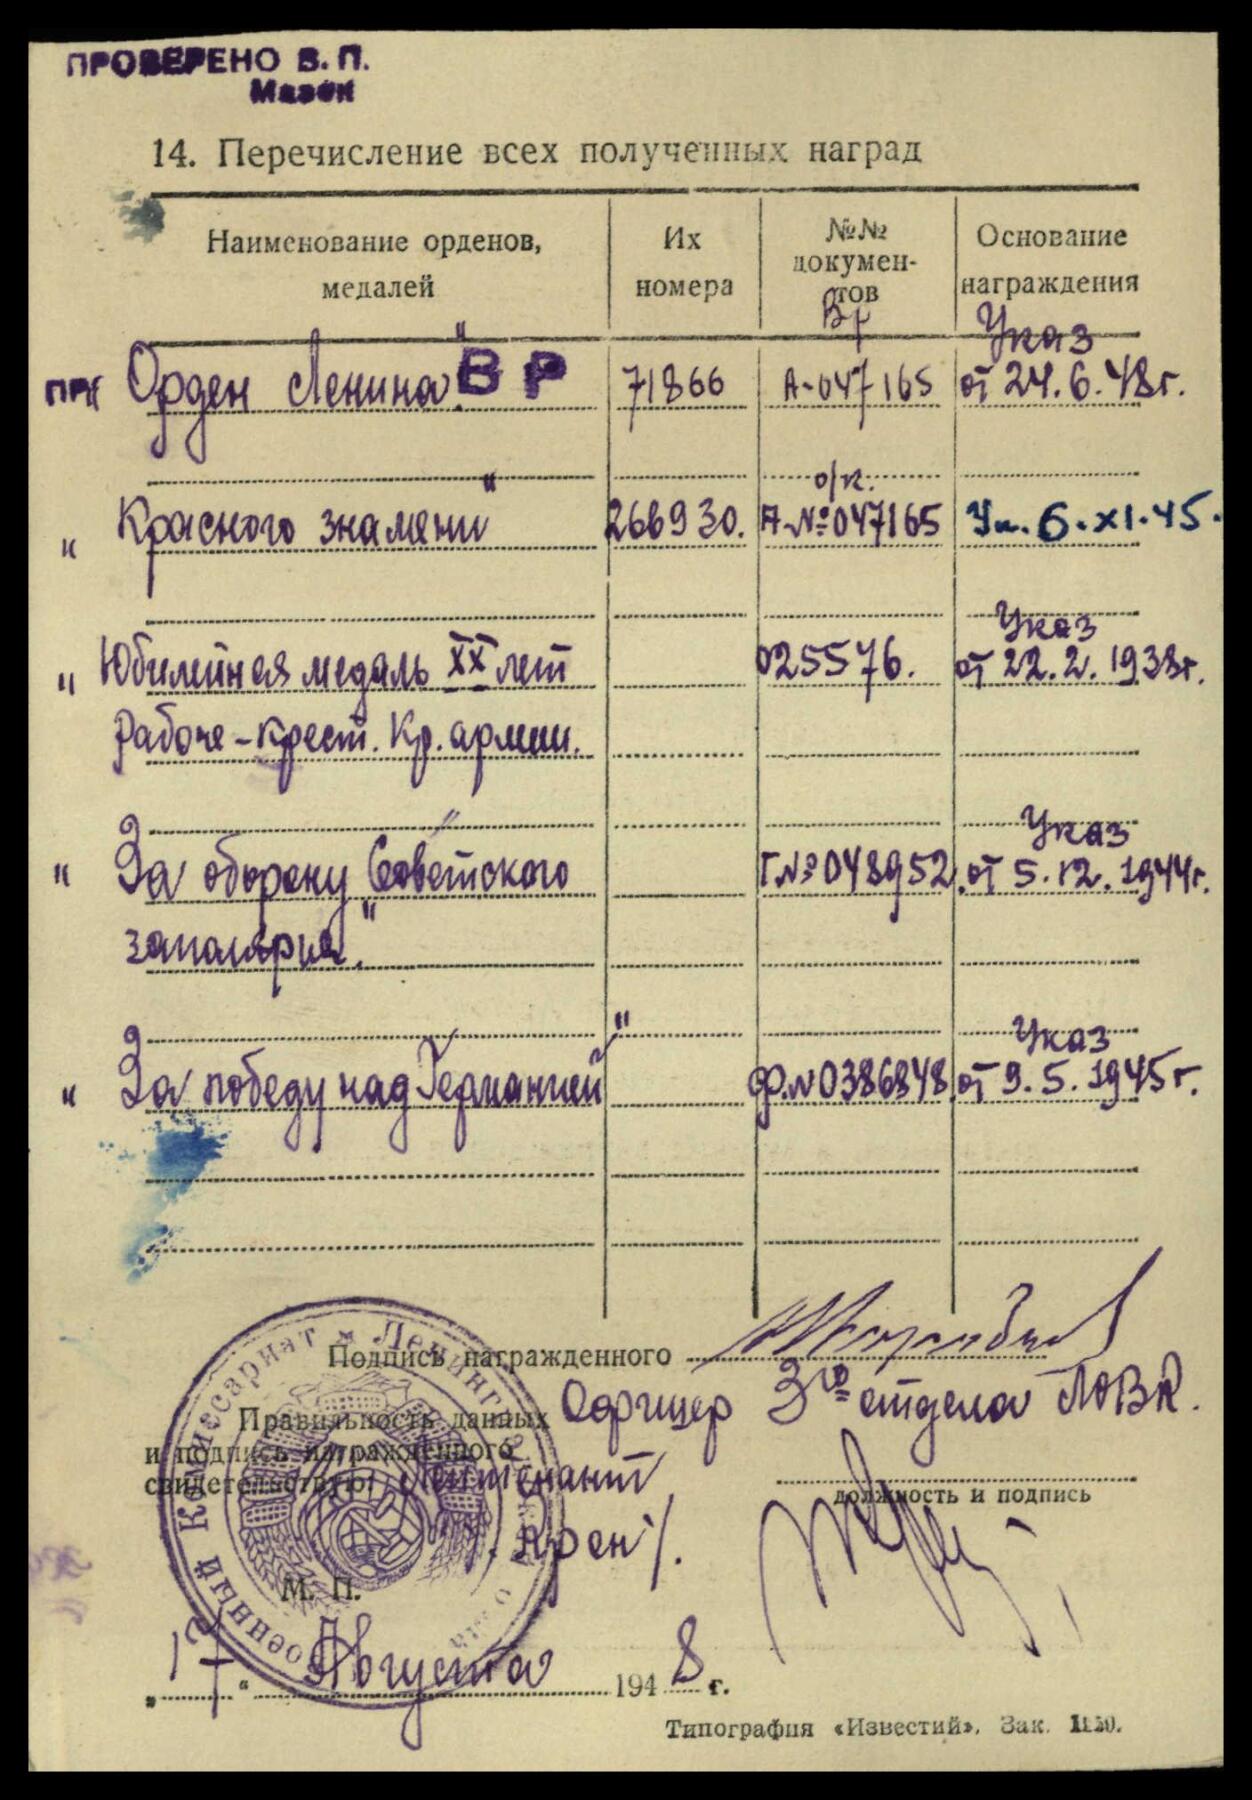 ПРОВЕРЕНО В. П.
14. Перечисление всех полученных наград
Наименование орденов, медалей
Их номера
№№ докумен-тов
Основание награждения
Вр
Указ
Орден Ленина" ВР 71866 А-047165 от 24.6.48г.
о/к.
" Красного знамени" 266930. А-№047165 Ук. 6.XI.45.
Указ
" Юбилейная медаль XX лет 025576. от 22.2.1938г.
Рабоче-крест. Кр. армии.
Указ
" За оборону Советского Г№048952. от 5.12.1944г.
заполярия".
Указ
" За победу над Германией" Ф.№0386848. от 9.5.1945г.
Подпись награжденного
Правильность данных Офицер 3го отдела ЛОВК.
и подпись награжденного
свидетельствую: Лейтенант
должность и подпись
М. П.
"17" Августа 1948 г.
Типография «Известий». Зак.
Военный Комиссариат